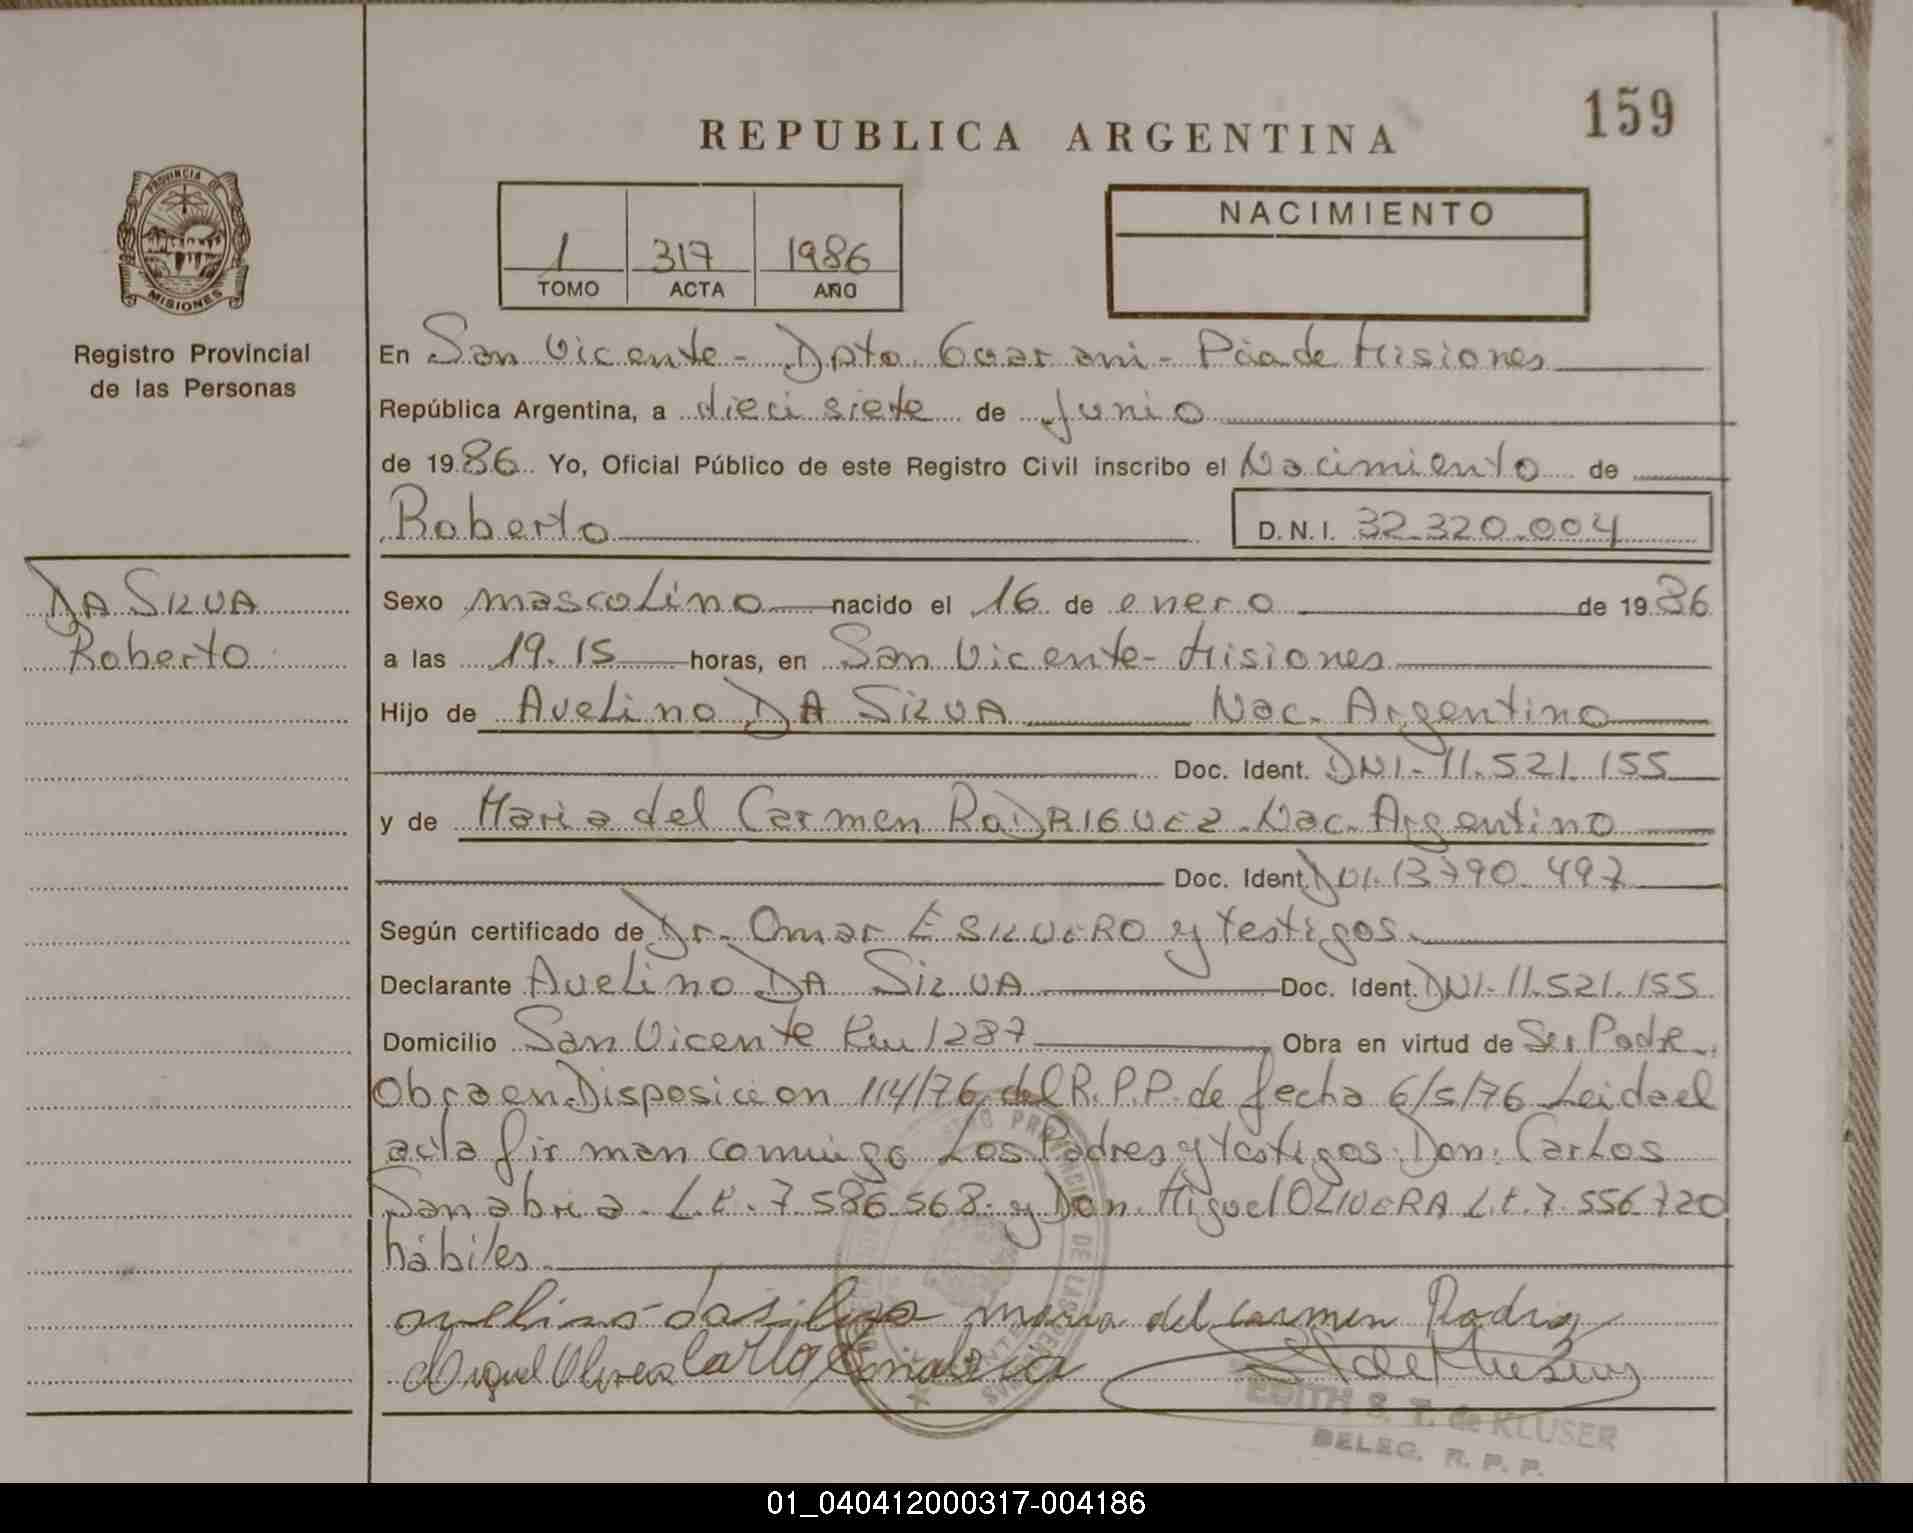 159
REPUBLICA ARGENTINA
PROVINCIA DE
MISIONES
Registro Provincial
de las Personas
1 317 1986
TOMO ACTA AÑO
NACIMIENTO
En San Vicente - Dpto Guarani - Pcia de Misiones
República Argentina, a dieci siete de Junio
de 1986 Yo, Oficial Público de este Registro Civil inscribo el Nacimiento de
Roberto D.N.I. 32.320.004
DA SILVA
Roberto
Sexo masculino nacido el 16 de enero de 1986
a las 19.15 horas, en San Vicente - Misiones
Hijo de Avelino DA SILVA Nac. Argentino
Doc. Ident. DNI - 11.521.155
y de Maria del Carmen RODRIGUEZ - Nac. Argentino
Doc. Ident. DNI. 13790.497
Según certificado de Dr. Omar E SILVERO y testigos.
Declarante Avelino DA SILVA Doc. Ident. DNI - 11.521.155
Domicilio San Vicente Km 1287 Obra en virtud de Ser Padre.
Obra en Disposicion 114/76 del R.P.P. de fecha 6/5/76 Leida el
acta firman conmigo Los Padres y testigos: Don: Carlos
Sanabria - L.E. 7.586.568. y Don. Miguel OLIVERA L.E. 7.556.720
hábiles.
avelino da silva maria del carmen Rodrig
Miguel Olivera Carlos Sanabria
EDITH S. T. de KLUSER
DELEG. R. P. P.
01_040412000317-004186